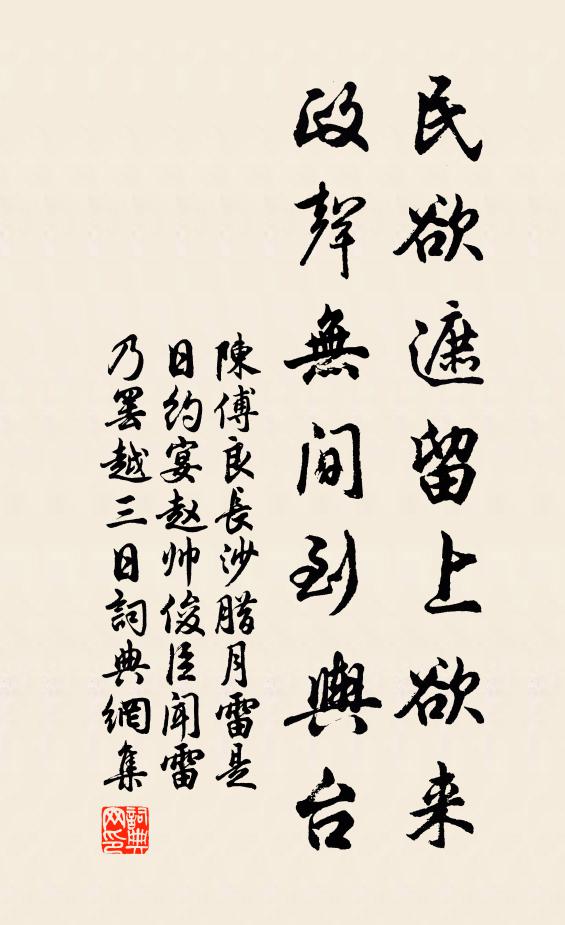 民欲遮留上欲来
政聲無間到輿台
陳傅良長沙腊月雷是
日约宴赵帅俊臣闻雷
乃罢越三日詞典網集
詞典
网印